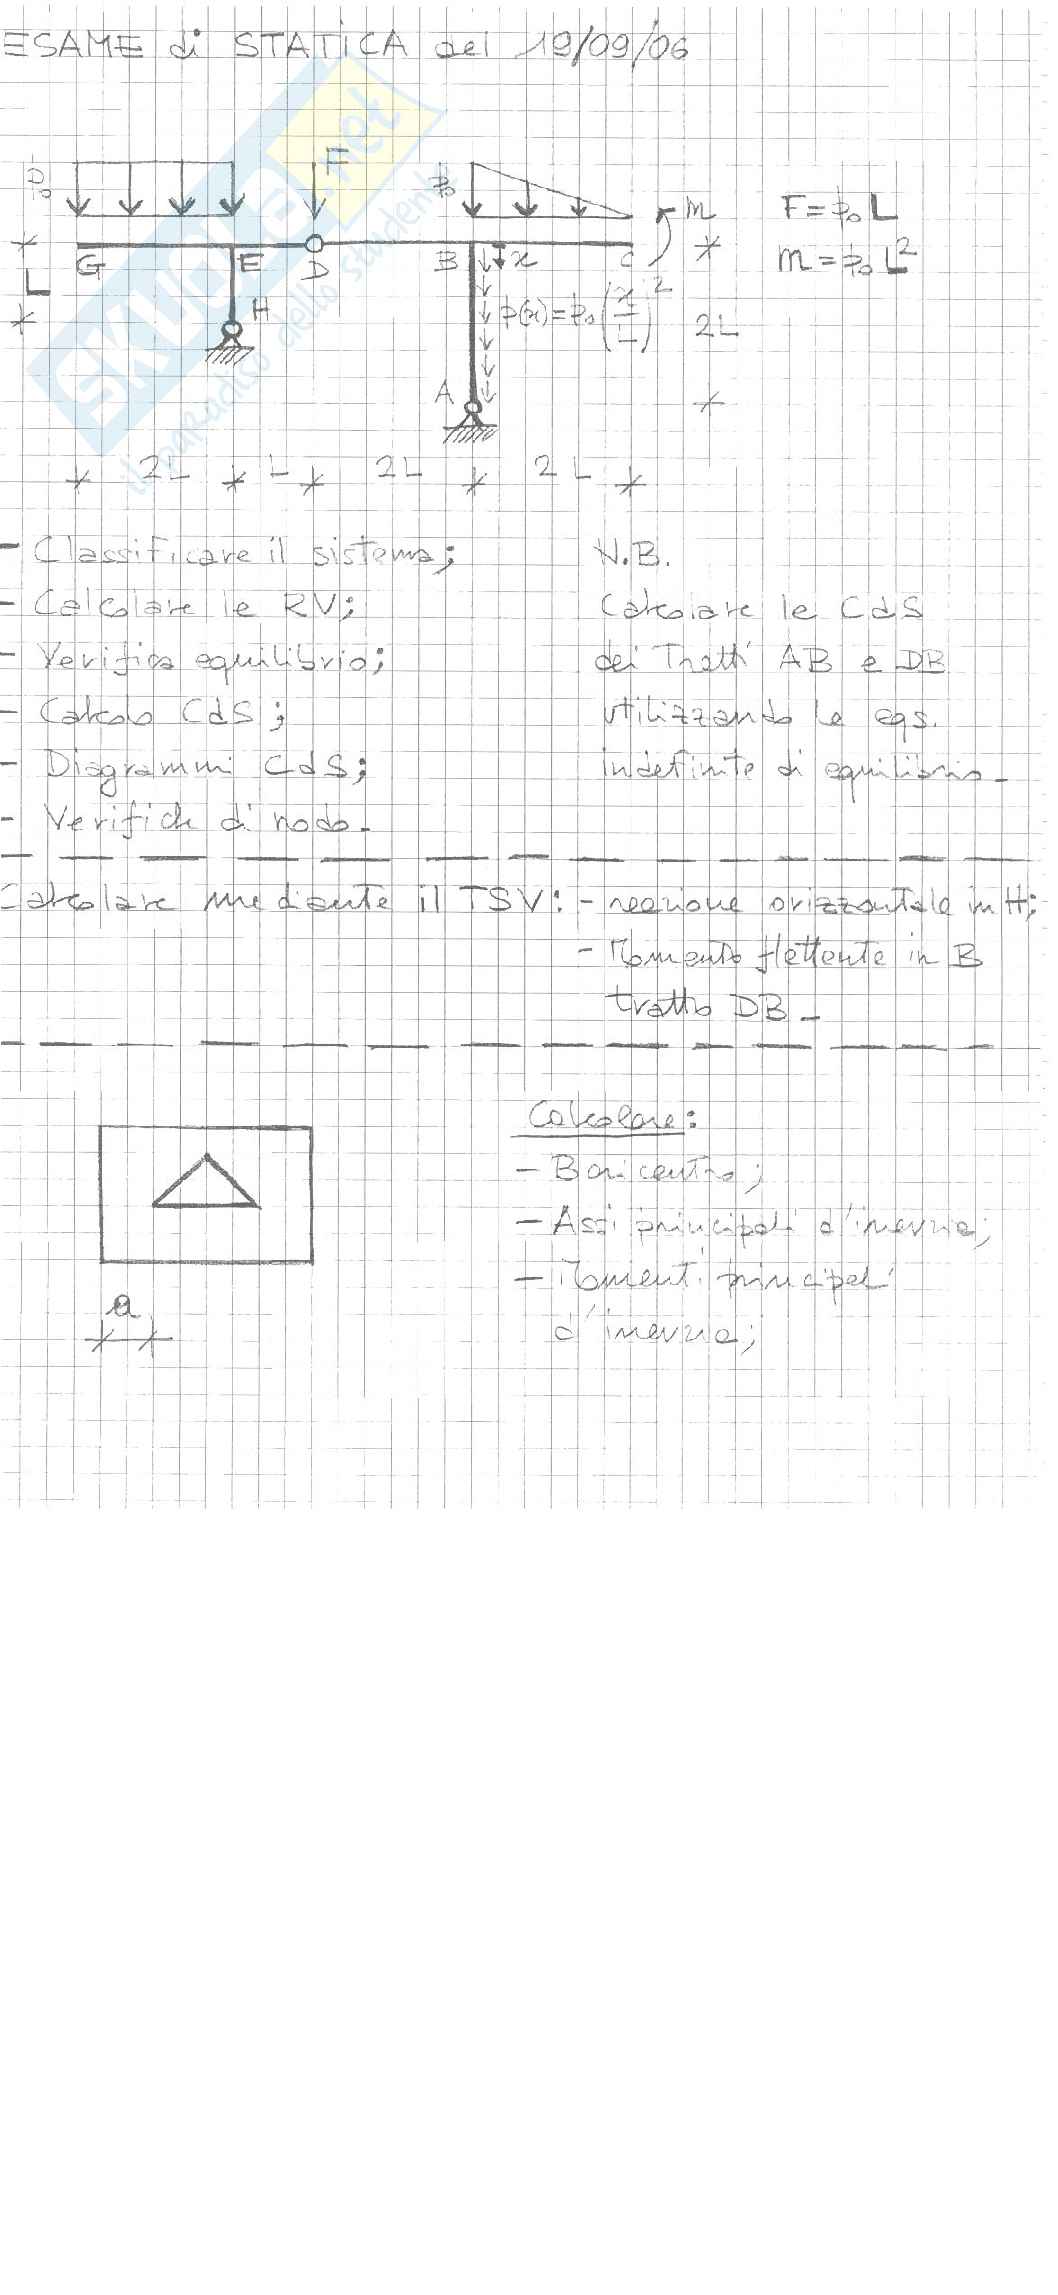 ESAME di STATICA del 19/09/06
p₀
F
p₀
m
F = p₀ L
m = p₀ L²
G
E
D
B
x
C
L
H
p(x) = p₀ (x/L)²
2L
A
2L
L
2L
2L
- Classificare il sistema;
- Calcolare le RV;
- Verifica equilibrio;
- Calcolo CdS;
- Diagrammi CdS;
- Verifiche di nodo.
N.B.
Calcolare le CdS
dei Tratti AB e DB
utilizzando le eqs.
indefinite di equilibrio.
Calcolare mediante il TSV: - reazione orizzontale in H;
- Momento flettente in B
tratto DB.
Calcolare:
- Baricentro;
- Assi principali d'inerzia;
- Momenti principali
d'inerzia;
a
SKUOLA.net
il paradiso dello studente